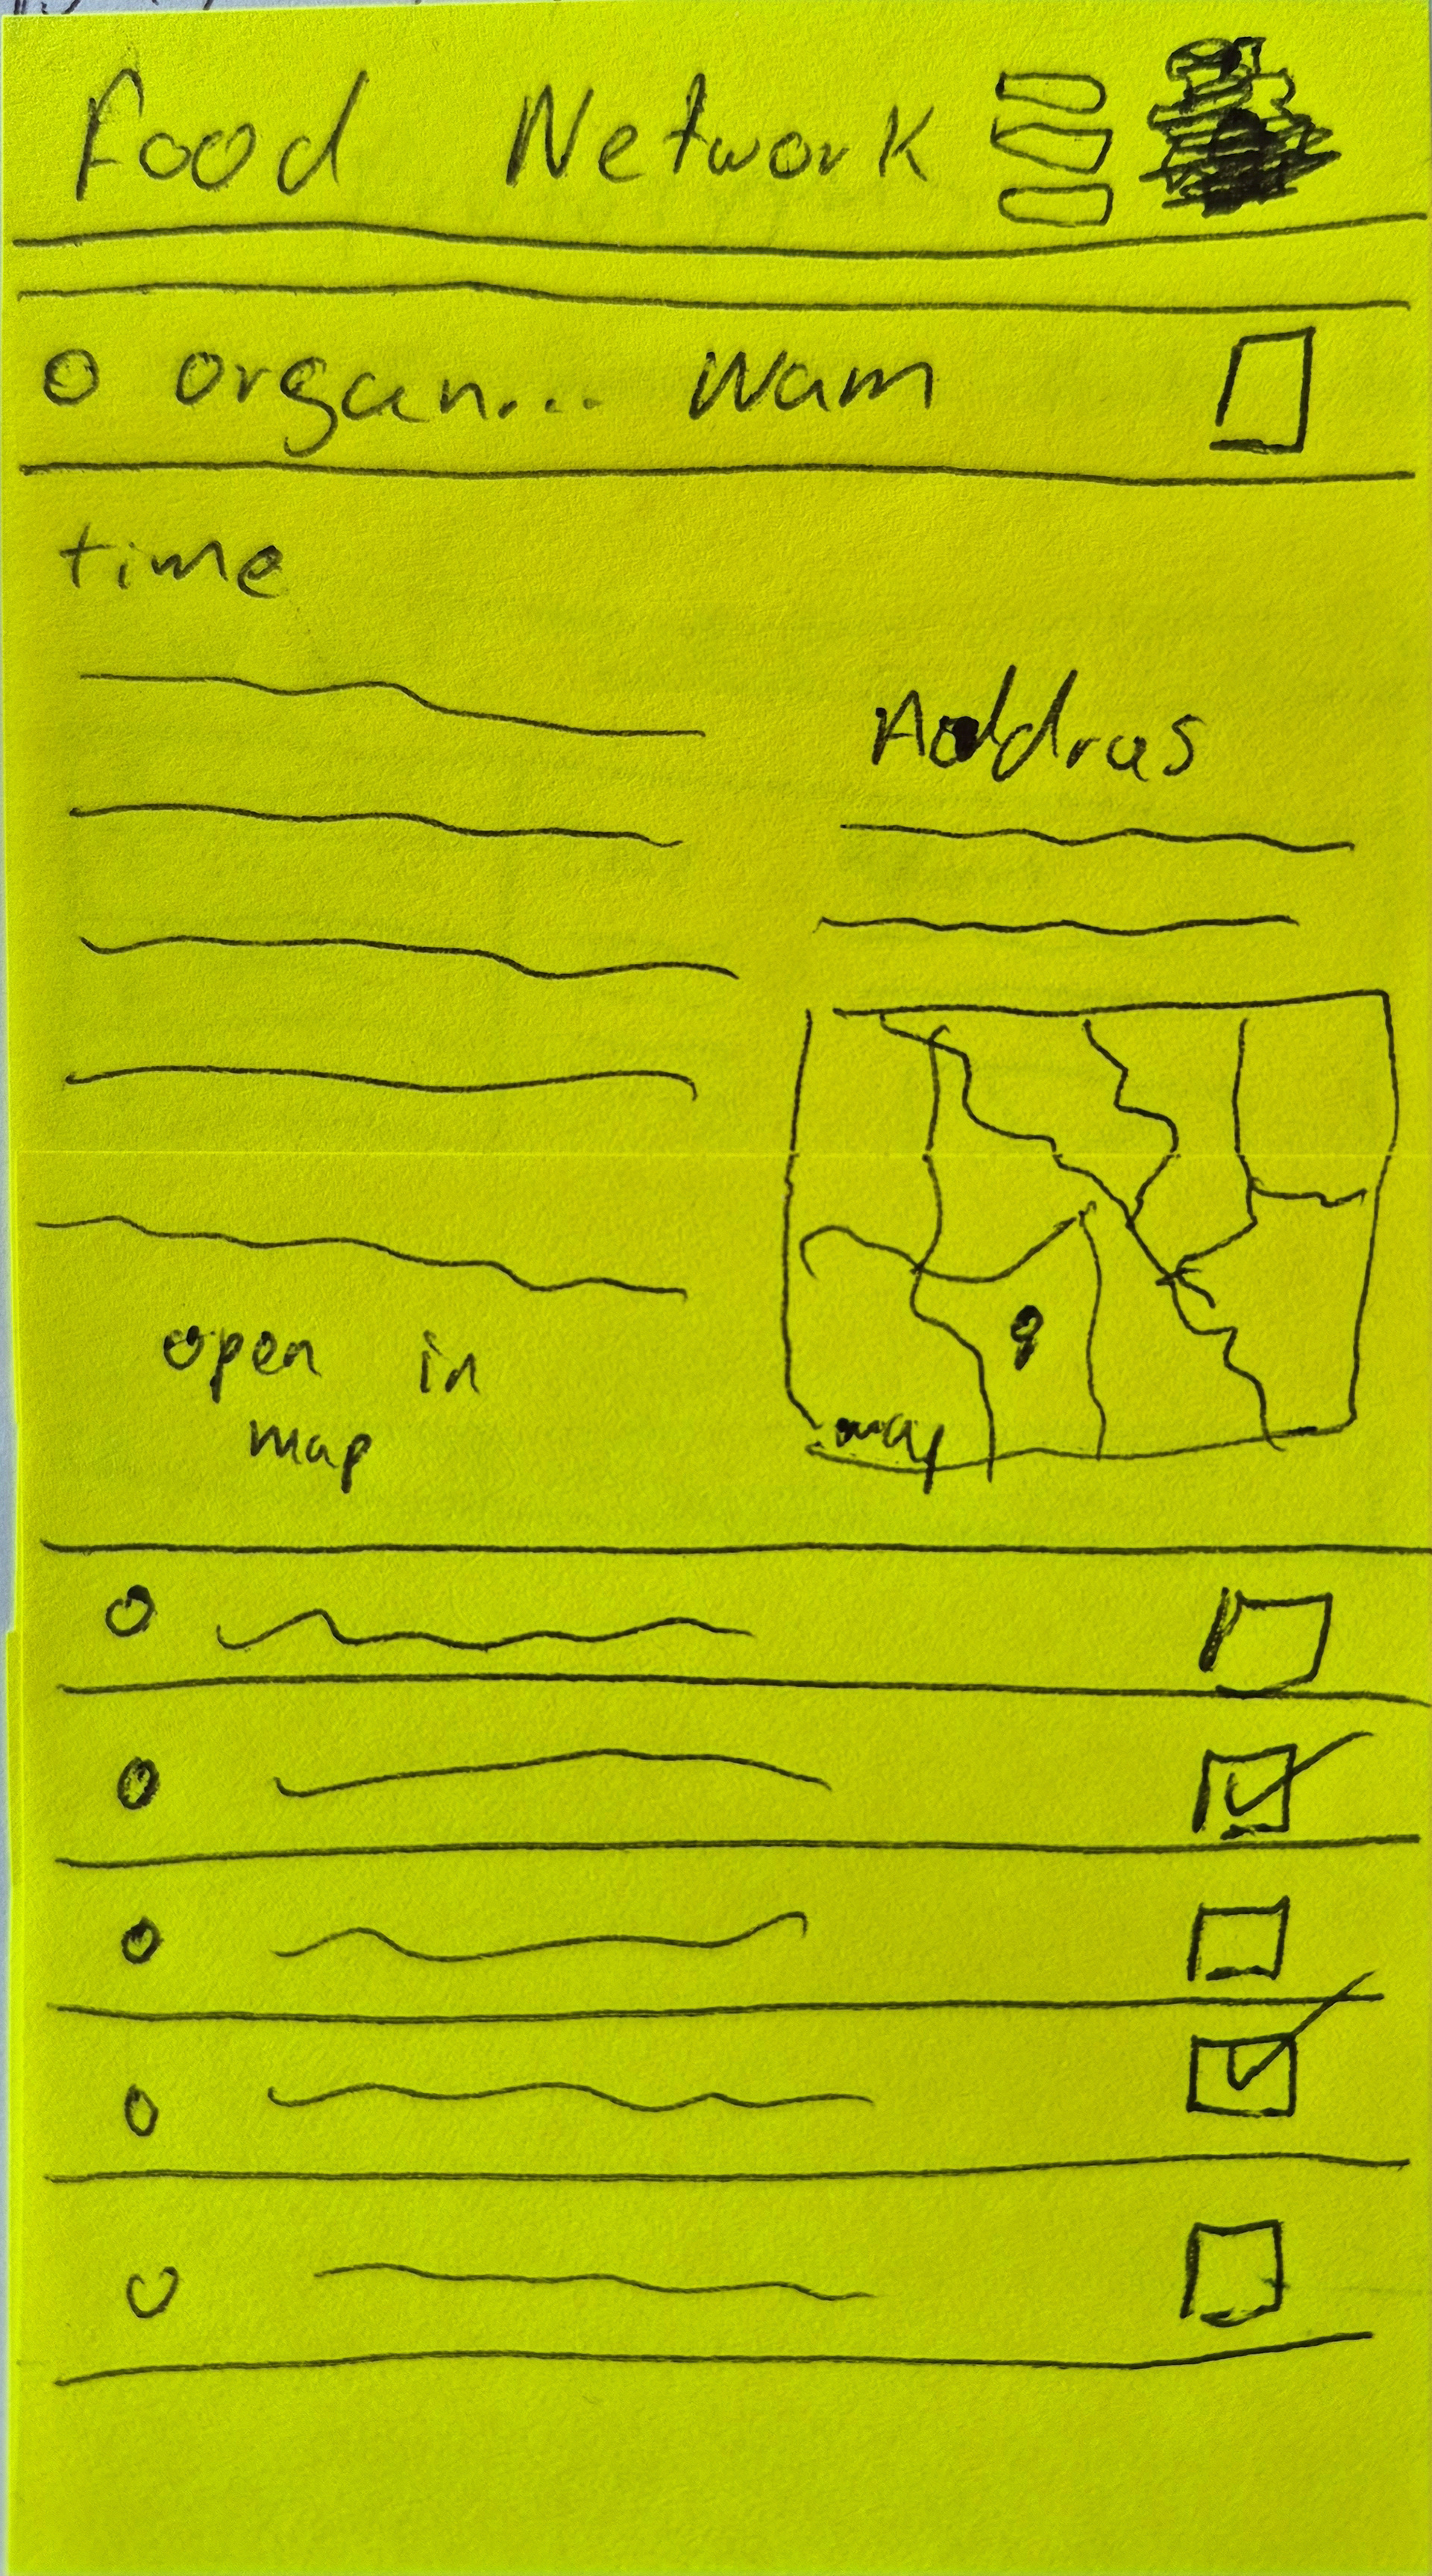 Food Network
organ... Wam
time
Addras
open in
map
map